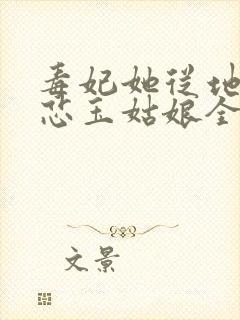 毒妃她从地
恋玉姑娘全
文景